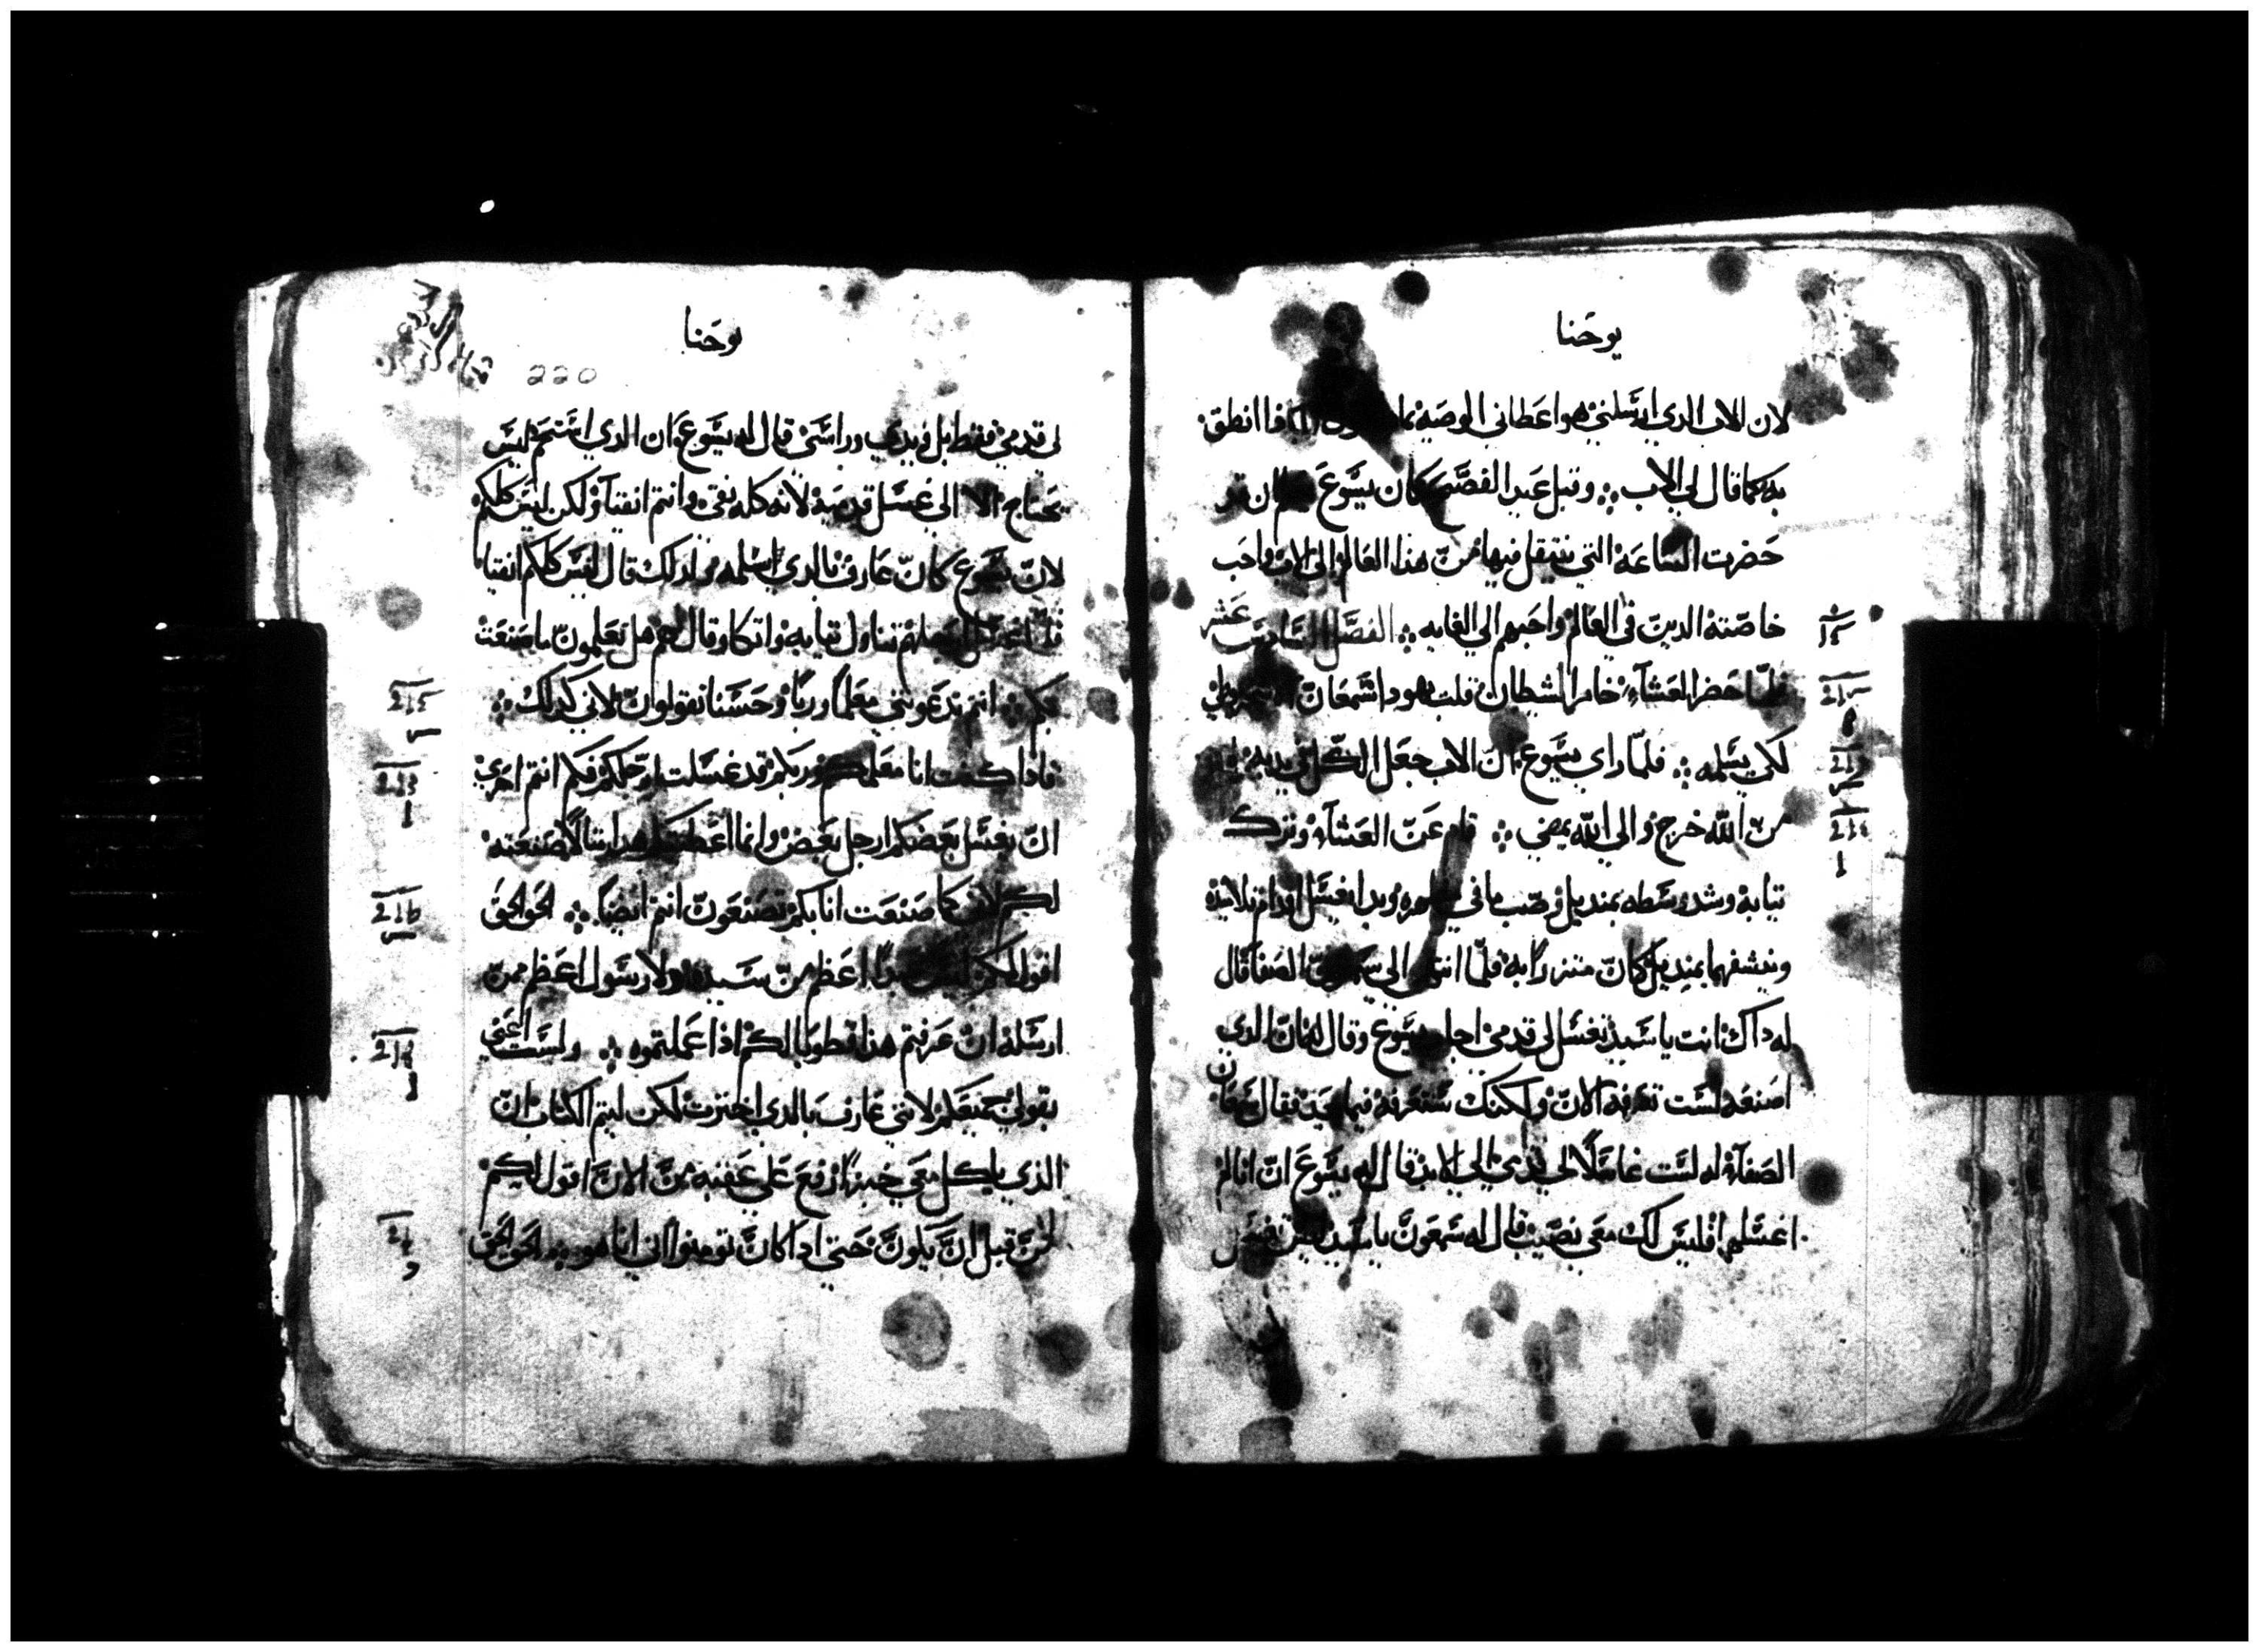 يوحنا
لان الاب الدي ارسلني هو اعطاني الوصيه انطق
به كما قال لي الاب ؞ وقبل عيد الفصح كان يسوع ان قد
حضرت الساعة التي ينتقل فيها من هذا العالم الى الاب واحب
خاصته الدين في العالم واحبهم الي الغايه ؞ الفصل السادس عشر
فلما حضر العشاء خامر الشيطان قلب يهودا شمعان
لكي يسلمه ؞ فلما راي يسوع ان الاب جعل الكل في يديه
من الله خرج والي الله يمضي ؞ قام عن العشاء وترك
تيابه وشد وسطه بمنديل وصب ما في وبدا يغسل اقدام تلاميذه
وينشفهما بمنديل كان متزرا به فلما انتهى الى الصفا قال
له داك انت يا سيد تغسل لي قدمي اجاب يسوع وقال له ان الدي
اصنعه لست تعرفه الان ولكنك ستعرفه فيما بعد فقال شمعان
الصفا له لست غاسلا لي قدمي الي الابد قال له يسوع ان انا لم
اغسلهما فليس لك معي نصيب قال له شمعون يا سيد ليس
يوحنا
220
لي قدمي فقط بل ويدي وراسي قال له يسوع ان الدي استحم ليس
يحتاج الا الى غسل قدميه لانه كله نقي وانتم انقيا ولكن ليس كلكم
لان يسوع كان عارف بالدي يسلمه ولدلك قال ليس كلكم انقيا
فلما غسل ارجلهم تناول تيابه واتكا وقال لهم هل تعلمون ما صنعت
بكم ؞ انتم تدعونني معلما وربا وحسنا تقولون لاني كدلك ؞
فادا كنت انا معلمكم وربكم قد غسلت ارجلكم فكم انتم احري
ان يغسل بعضكم ارجل بعض وانما اعطيتكم هدا متالا صنعته
لكم لان كما صنعت انا بكم تصنعون انتم ايضا ؞ الحق الحق
اقول لكم ليس عبدا اعظم من سيده ولا رسول اعظم ممن
ارسله ان عرفتم هذا فطوبا لكم اذا عملتموه ؞ ولست اعني
بقولي جميعكم لانني عارف بالدي اخترت لكن ليتم الكتاب ان
الذي ياكل معي خبزا رفع علي عقبه من الان اقول لكم
من قبل ان يكون حتي ادا كان تومنوا اني انا هو ؞ الحق الحق